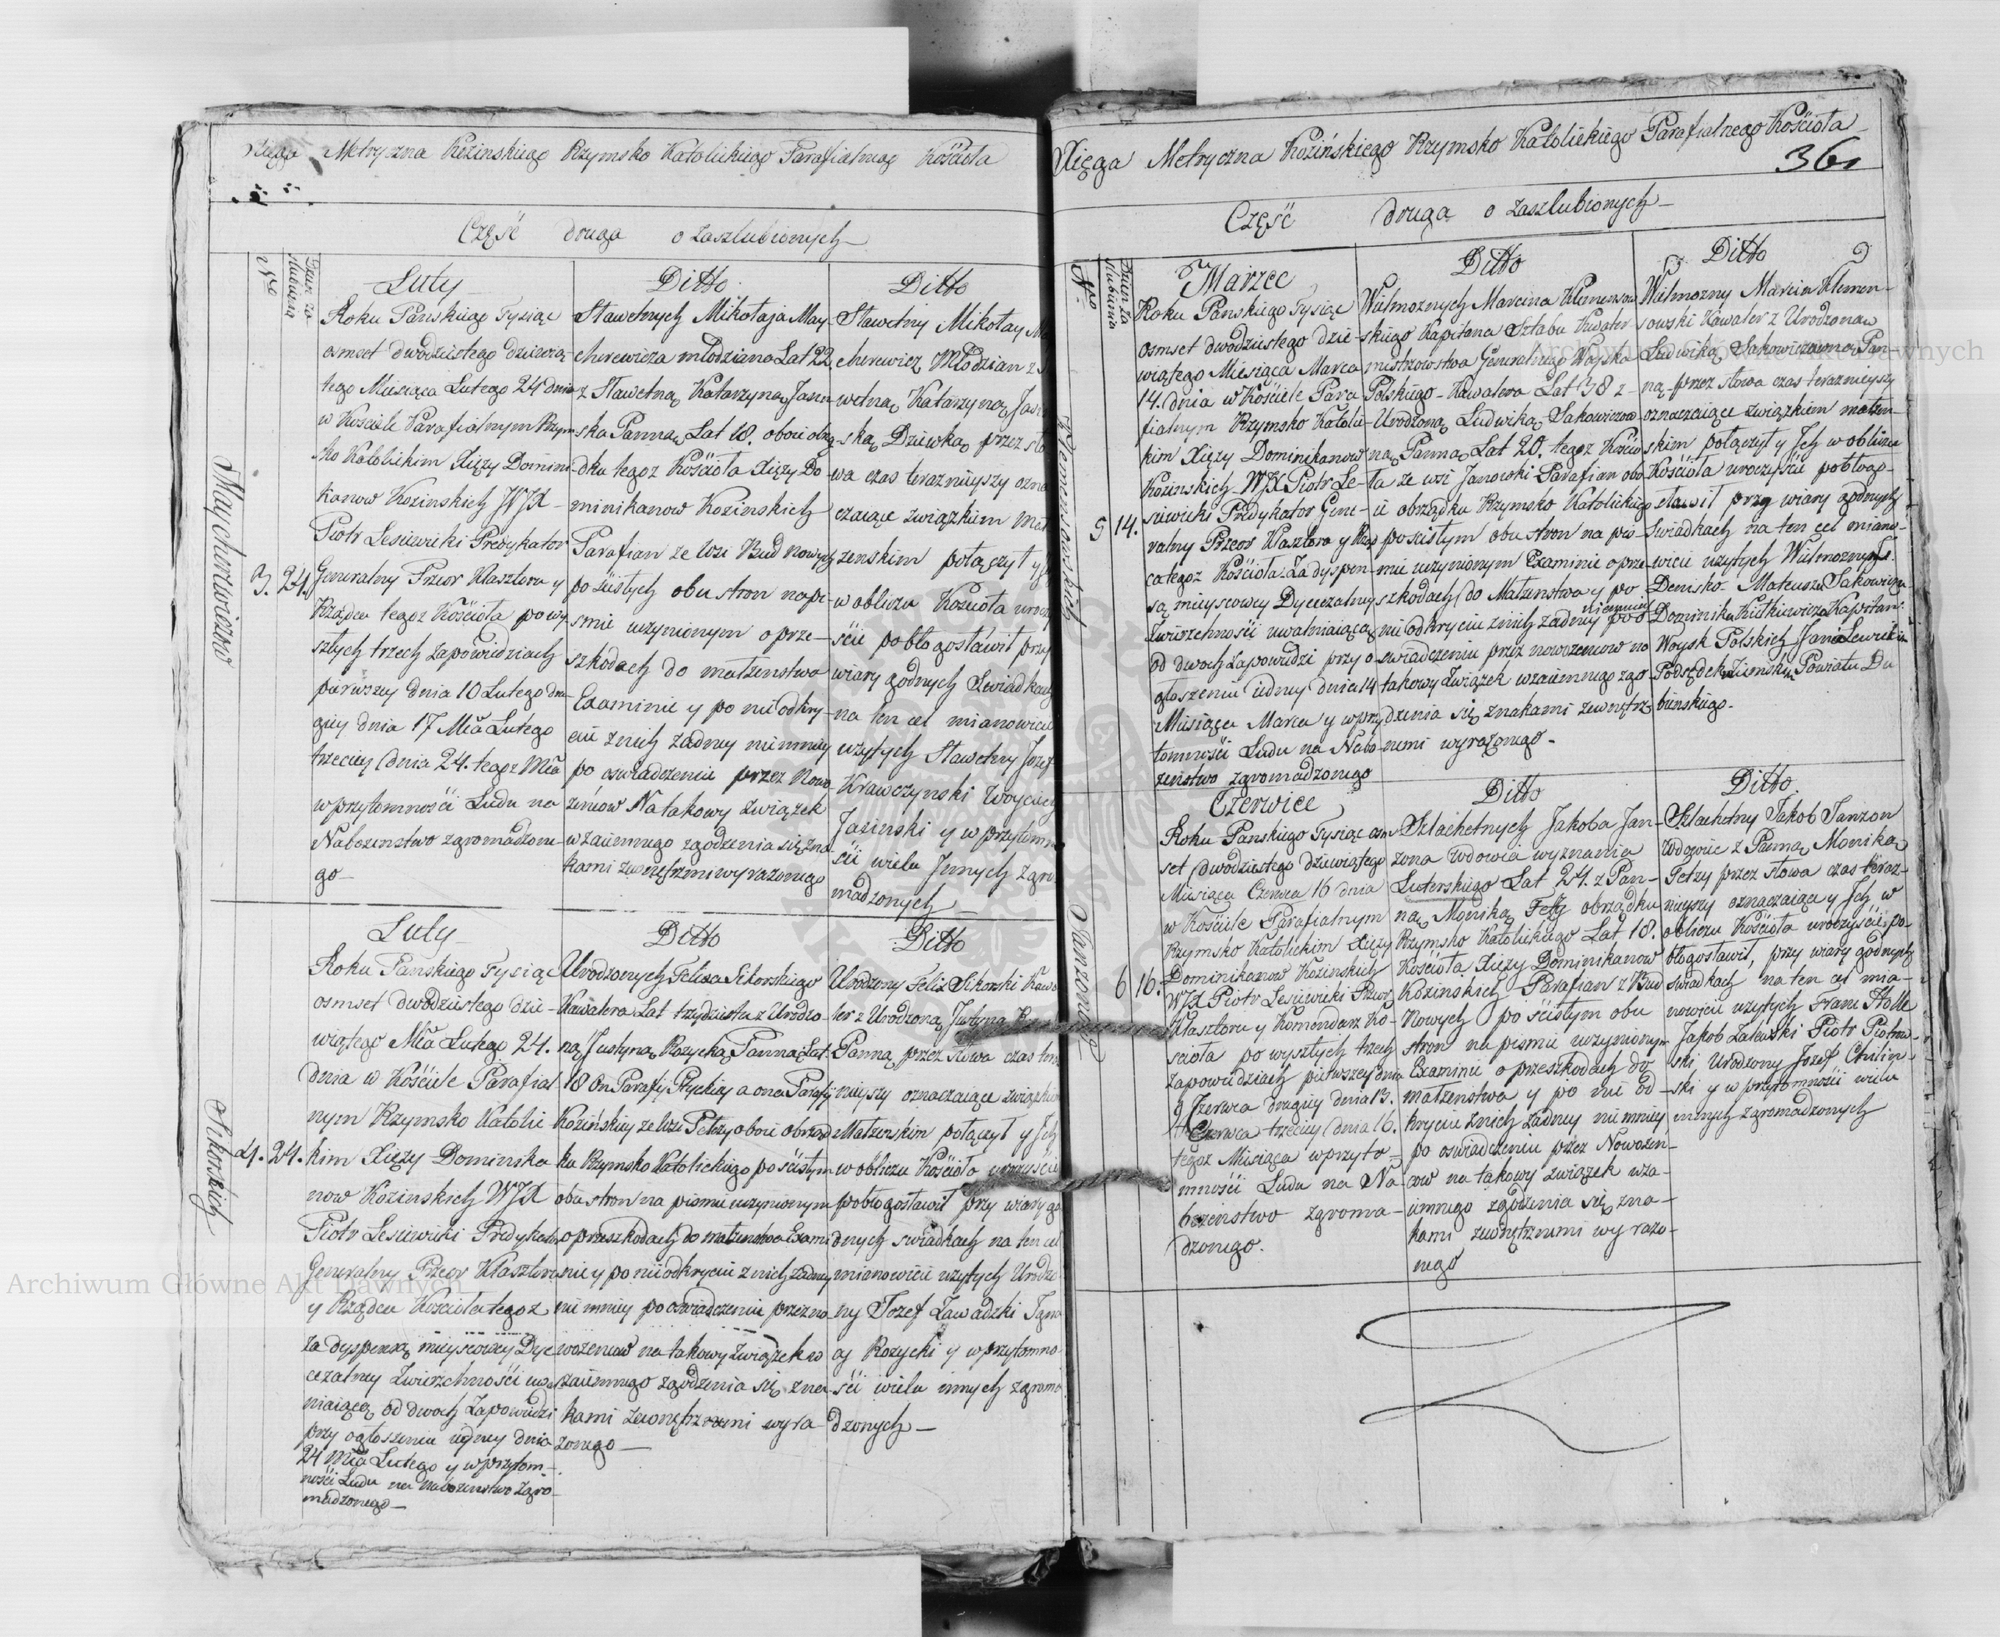 Xięga Metryczna Kozinskiego Rzymsko Katolickiego Parafialnego Kościoła
Część druga o zaszlubionych
Nro
Dzień za
szlubienia
Maycherewiczow
3. 24.
Luty
Roku Panskiego Tysiąc
osmset dwódziestego dziewią
tego Miesiąca Lutego 24 dnia
w Kościele Parafialnym Rzym
sko Katolickim Xięży Domini
kanow Kozinskich WJX
Piotr Lesiewicki Prédykator
Generalny Przeor Klasztoru y
Rządca tegoż Kościoła po wy
szłych trzech zapowiedziach
pierwszey dnia 10 Lutego dru
giey dnia 17 Mca Lutego
trzeciey dnia 24. tegoż Mca
w przytomności Ludu na
Nabozenstwo zgromadzone
go
Ditto
Sławetnych Mikołaja May-
cherewicza młodziana Lat 22.
z Sławetną Katarzyną Jasin
ska Panną Lat 18. oboie obrzą
dku tegoż Kościoła Xięży Do
minikanow Kozinskich
Parafian ze Wsi Bud Nowych
po ścisłych obu stron na pi
smie uczynionym o prze-
szkodach do matzenstwa
Examinie y po nie odkry-
ciu z nich żadney niemniey
po oswiadczeniu przez Nowo
żeńcow Na takowy związek
wzaiemnego zgodzenia się zna
kami zewnętrznemi wyrazonego
Ditto
Sławetny Mikołay
cherewicz Młodzian z
wetną Katarzyną Jasin
ską Dziewką przez sło
wa czas teraznieyszy ozna
czaiące związkiem mał
zenskim połączył y
w obliczu Kościoła uroczy
ście pobłogosławił przy
wiary godnych Swiadkach
na ten cel mianowicie
użytych Sławetny Jozef
Krawczynski Woyciech
Jasinski y w przytomno
ści wielu Jnnych zgro
madzonych
Sikorskich
4. 24.
Luty
Roku Panskiego Tysiąc
osmset dwódziestego dzie-
wiątego Mca Lutego 24.
dnia w Kościele Parafial
nym Rzymsko Katolic
kim Xięży Dominika
now Kozinskich WJX
Piotr Lesiewicki Prédykator
Generalny Przeor Klasztoru
y Rządca Kościoła tegoż
za dyspensą mieyscowey Dye
cezalney Zwierzchności uwal
niaiącą od dwoch Zapowiedzi
przy ogłoszeniu iedney dnia
24 Mca Lutego y w przytom-
ności Ludu na Nabozenstwo zgro-
madzonego
Ditto
Urodzonych Felixa Sikorskiego
Kawalera Lat trzydziestu z Urodzo
ną Justyną Rozycką Panną Lat
18 On Parafij Ptyckiey a ona Parafij
Kozińskiey ze Wsi Petzy oboie obrząd
ku Rzymsko Katolickiego po ścisłym
obu stron na pismie uczynionym
o przeszkodach do matzenstwa Exami
nie y po nie odkryciu z nich żadney
nie mniey po oswiadczeniu przez no
wożencow na takowy związek w
zaiemnego zgodzenia się zna
kami zewnętrznemi wyra
zonego
Ditto
Urodzony Felix Sikorski Kawa
ler z Urodzoną Justyną
Panną przez słowa czas tera
nieyszy oznaczaiące związkiem
Matzenskim połączył y Jch
w obliczu Kościoła uroczyście
pobłogosławił przy wiary go
dnych swiadkach na ten cel
mianowicie użytych Urodzo
ny Jozef Zawadzki Igna
cy Rozycki y w przytomno
ści wielu innych zgroma
dzonych
Xięga Metryczna Kozińskiego Rzymsko Katolickiego Parafialnego Kościoła
361
Część druga o zaszlubionych
Nro
Dzień za
szlubienia
Klemensowskich
5 14.
Marzec
Roku Panskiego Tysiąc
osmset dwodziestego dzie-
wiątego Miesiąca Marca
14. dnia w Kościele Para
fialnym Rzymsko Katolic
kim Xięży Dominikanow
Kozinskich WJX Piotr Le-
siewicki Prédykator Gene
ralny Przeor Klasztoru y Rząd
ca tegoż Kościoła Za dyspen
są mieyscowey Dyecezalney
Zwierzchności uwalniaiącą
od dwoch Zapowiedzi przy o
głoszeniu iedney dnia 14
Miesiąca Marca y w przy
tomności Ludu na Nabo
zeństwo zgromadzonego
Ditto
Wielmoznych Marcina Klemensow
skiego Kapitana Sztabu Kwater
mistrzowstwa Generalnego Woyska
Polskiego Kawalera Lat 38 z
Urodzoną Ludwiką Sakowiczow
ną Panną Lat 20. tegoż Kościo
ła ze wsi Janowki Parafian obo
ie obrządku Rzymsko Katolickiego
po scisłym obu stron na pis
mie uczynionym Examinie o prze
szkodach do Matzenstwa y po
nie odkryciu z nich żadney niemniey po o
swiadczeniu przez nowozencow na
takowy związek wzaiemnego zgo
dzenia się znakami zewnętrz
nemi wyrazonego
Ditto
Wielmozny Marcin Klemen-
sowski Kawaler z Urodzoną
Ludwiką Sakowiczowną Pan-
ną przez słowa czas teraznieyszy
oznaczaiące związkiem matzen-
skim połączył y Jch w obliczu
Kościoła uroczyście pobłogo-
sławił przy wiary godnych
Swiadkach na ten cel miano-
wicie użytych Wielmoznych
Denisko Mateusza Sakowicza
Dominika Kutkiewicza Kapitan
Woysk Polskich Jana Lewickie
Podsędek Ziemski Powiatu Du
bieńskiego
Janzonow
6 16.
Czerwiec
Roku Panskiego Tysiąc osm
set dwodziestego dziewiątego
Miesiąca Czerwca 16 dnia
w Kościele Parafialnym
Rzymsko Katolickim Xięży
Dominikanow Kozinskich
WJX Piotr Lesiewicki Przeor
Klasztoru y Komendarz Ko-
scioła po wyszłych trzech
zapowiedziach pierwszey dnia
9 Czerwca drugiey dnia 13.
Czerwca trzeciey dnia 16.
tegoż Miesiąca w przyto-
mności Ludu na Na
bozeństwo zgroma-
dzonego.
Ditto
Szlachetnych Jakoba Jan-
zona Wdowca wyznania
Luterskiego Lat 24. z Pan-
ną Moniką Petzy obrządku
Rzymsko Katolickiego Lat 18.
Kościoła Xięży Dominikanow
Kozinskich Parafian z Bud
Nowych po ścisłym obu
stron na pismie uczynionym
Examinie o przeszkodach do
matzenstwa y po nie od
kryciu z nich żadney niemniey
po oswiadczeniu przez Nowozen-
cow na takowy związek wza-
iemnego zgodzenia się zna-
kami zewnętrznemi wyrazo-
nego
Ditto
Szlachetny Jakob Janzon
Wdowiec z Panną Moniką
Petzy przez słowa czas teraz-
nieyszy oznaczaiące y Jch w
obliczu Kościoła uroczyście po-
błogosławił, przy wiary godnych
swiadkach na ten cel mia-
nowicie użytych Hans Holle
Jakob Zalewski Piotr Piotrow-
ski, Urodzony Jozef Chilin-
ski y w przytomności wielu
innych zgromadzonych
Archiwum Główne Akt Dawnych
Archiwum Główne Akt Dawnych